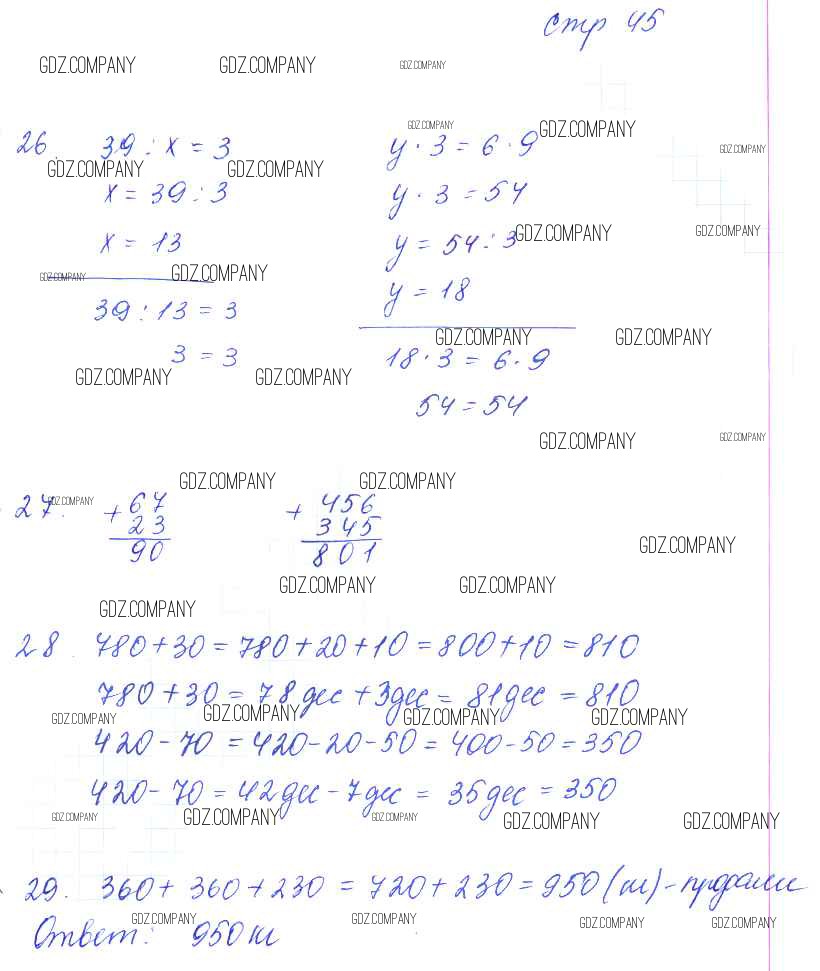 стр 45
26. 39 : x = 3
x = 39 : 3
x = 13
39 : 13 = 3
3 = 3
y · 3 = 6 · 9
y · 3 = 54
y = 54 : 3
y = 18
18 · 3 = 6 · 9
54 = 54
27. + 67
23
90
+ 456
345
801
28. 780 + 30 = 780 + 20 + 10 = 800 + 10 = 810
780 + 30 = 78 дес + 3 дес = 81 дес = 810
420 - 70 = 420 - 20 - 50 = 400 - 50 = 350
420 - 70 = 42 дес - 7 дес = 35 дес = 350
29. 360 + 360 + 230 = 720 + 230 = 950 (кг) - продали
Ответ: 950 кг
GDZ.COMPANY